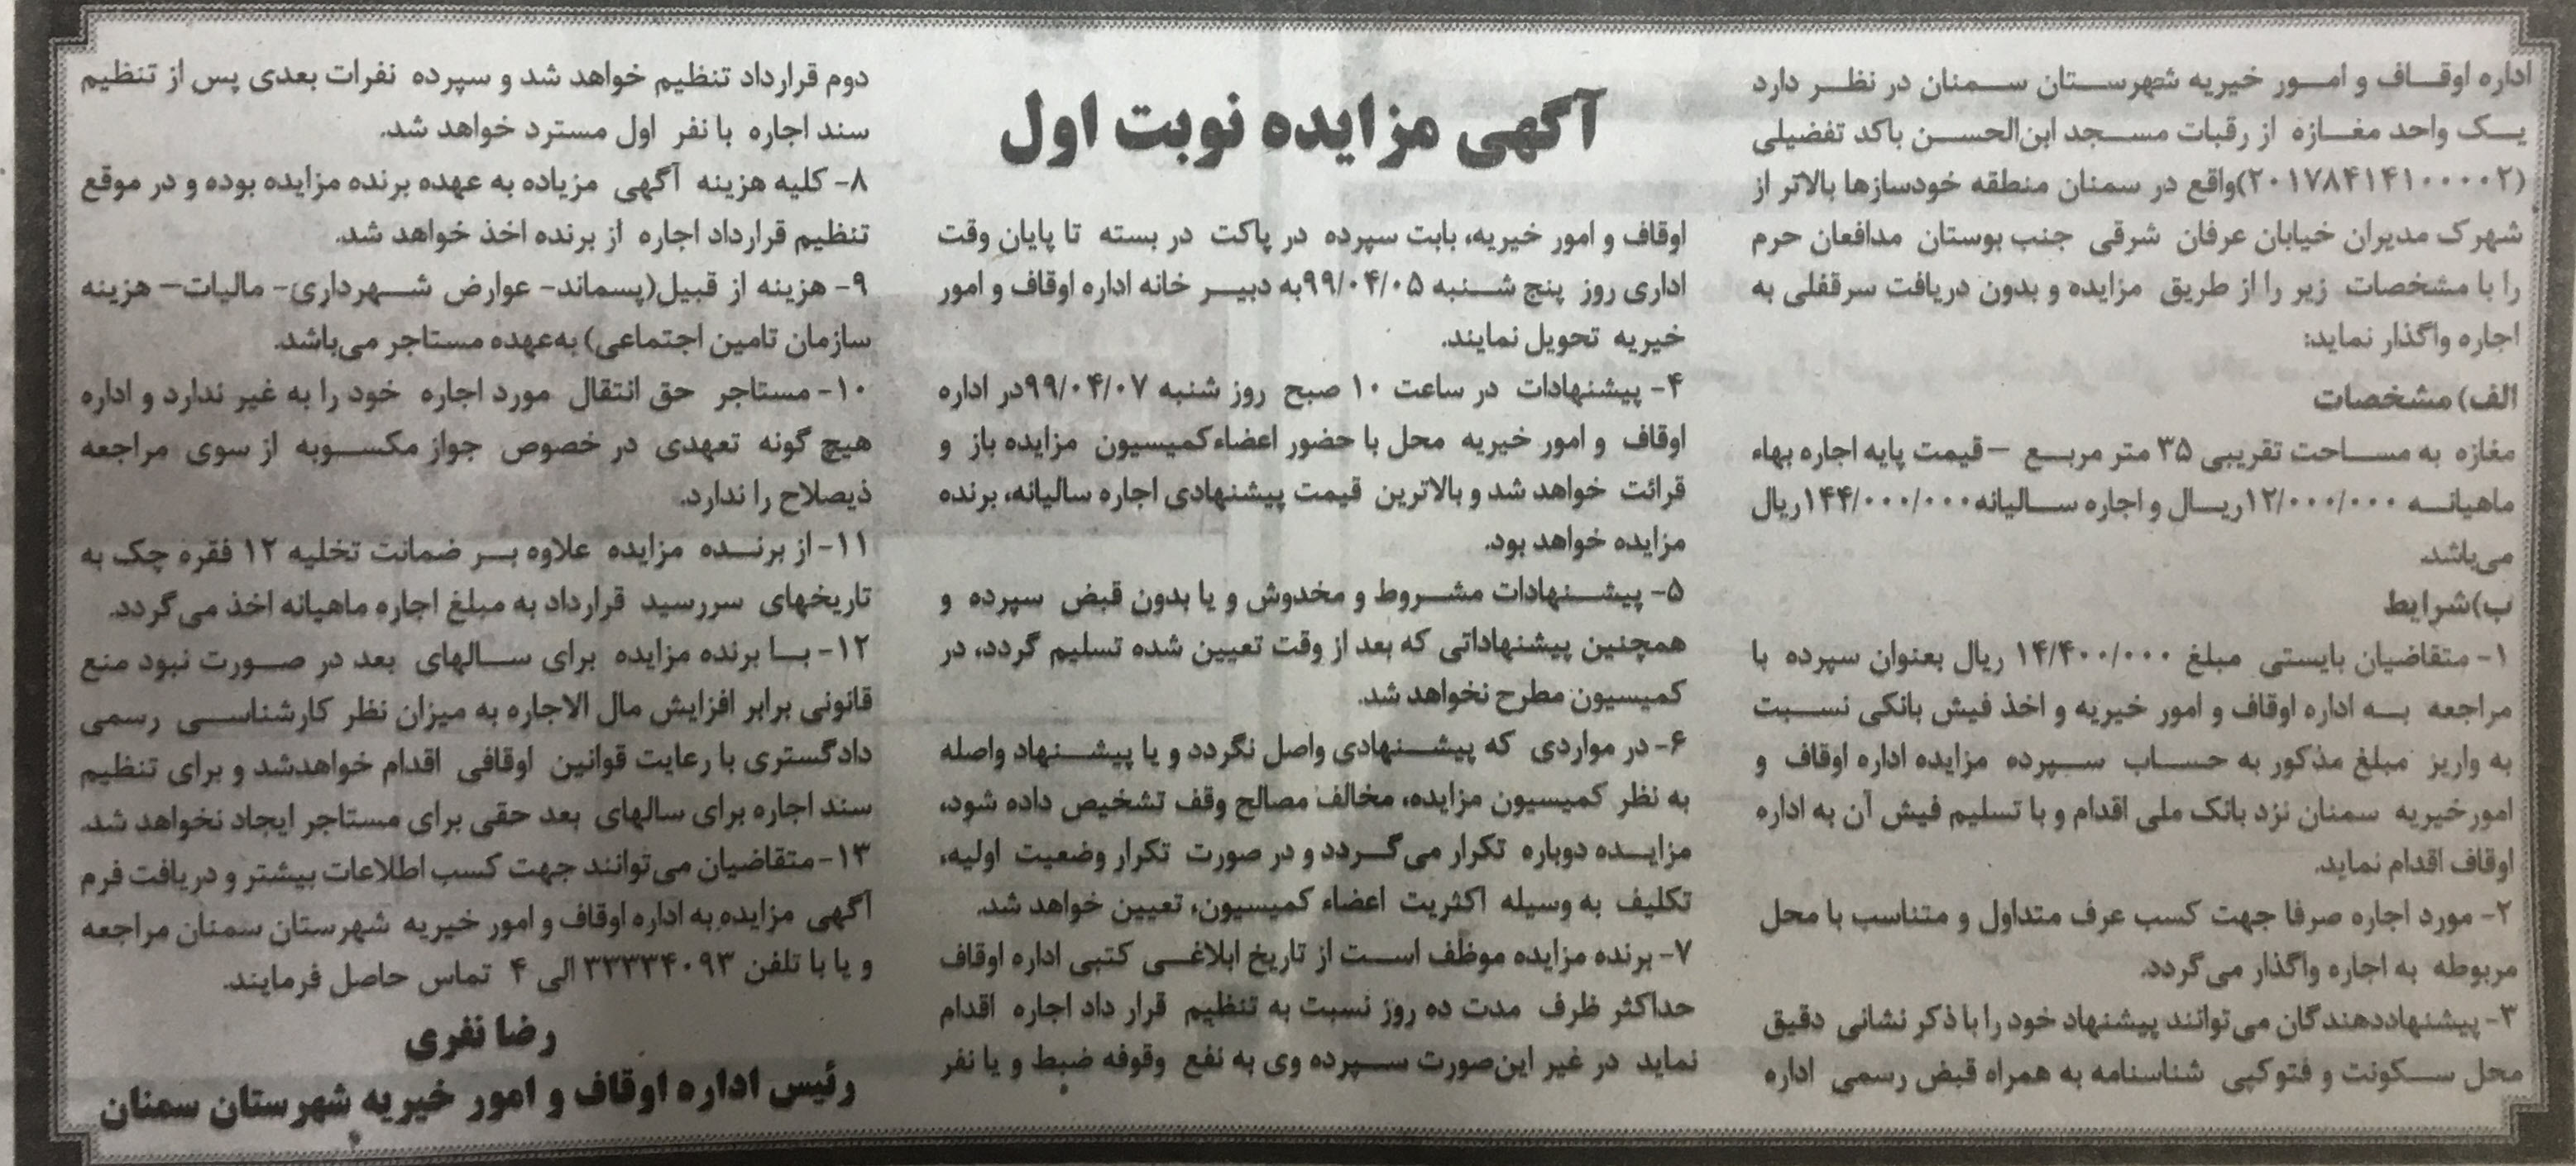 آگهی مزایده نوبت اول
اداره اوقاف و امور خیریه شهرستان سمنان در نظر دارد
یک واحد مغازه از رقبات مسجد ابن‌الحسن باکد تفضیلی
(۲۰۱۷۸۴۱۴۱۰۰۰۰۲)واقع در سمنان منطقه خودسازها بالاتر از
شهرک مدیران خیابان عرفان شرقی جنب بوستان مدافعان حرم
را با مشخصات زیر را از طریق مزایده و بدون دریافت سرقفلی به
اجاره واگذار نماید:
الف) مشخصات
مغازه به مساحت تقریبی ۳۵ متر مربع –قیمت پایه اجاره بهاء
ماهیانه ۱۲/۰۰۰/۰۰۰ریال و اجاره سالیانه۱۴۴/۰۰۰/۰۰۰ریال
می‌باشد.
ب)شرایط
۱- متقاضیان بایستی مبلغ ۱۴/۴۰۰/۰۰۰ ریال بعنوان سپرده با
مراجعه به اداره اوقاف و امور خیریه و اخذ فیش بانکی نسبت
به واریز مبلغ مذکور به حساب سپرده مزایده اداره اوقاف و
امورخیریه سمنان نزد بانک ملی اقدام و با تسلیم فیش آن به اداره
اوقاف اقدام نماید.
۲- مورد اجاره صرفا جهت کسب عرف متداول و متناسب با محل
مربوطه به اجاره واگذار می‌گردد.
۳- پیشنهاددهندگان می‌توانند پیشنهاد خود را با ذکر نشانی دقیق
محل سکونت و فتوکپی شناسنامه به همراه قبض رسمی اداره
اوقاف و امور خیریه، بابت سپرده در پاکت در بسته تا پایان وقت
اداری روز پنج شنبه ۹۹/۰۴/۰۵به دبیر خانه اداره اوقاف و امور
خیریه تحویل نمایند.
۴- پیشنهادات در ساعت ۱۰ صبح روز شنبه ۹۹/۰۴/۰۷در اداره
اوقاف و امور خیریه محل با حضور اعضاءکمیسیون مزایده باز و
قرائت خواهد شد و بالاترین قیمت پیشنهادی اجاره سالیانه، برنده
مزایده خواهد بود.
۵- پیشنهادات مشروط و مخدوش و یا بدون قبض سپرده و
همچنین پیشنهاداتی که بعد از وقت تعیین شده تسلیم گردد، در
کمیسیون مطرح نخواهد شد.
۶- در مواردی که پیشنهادی واصل نگردد و یا پیشنهاد واصله
به نظر کمیسیون مزایده، مخالف مصالح وقف تشخیص داده شود،
مزایده دوباره تکرار می‌گردد و در صورت تکرار وضعیت اولیه،
تکلیف به وسیله اکثریت اعضاء کمیسیون، تعیین خواهد شد.
۷- برنده مزایده موظف است از تاریخ ابلاغی کتبی اداره اوقاف
حداکثر ظرف مدت ده روز نسبت به تنظیم قرار داد اجاره اقدام
نماید در غیر این‌صورت سپرده وی به نفع وقوفه ضبط و یا نفر
دوم قرارداد تنظیم خواهد شد و سپرده نفرات بعدی پس از تنظیم
سند اجاره با نفر اول مسترد خواهد شد.
۸- کلیه هزینه آگهی مزیاده به عهده برنده مزایده بوده و در موقع
تنظیم قرارداد اجاره از برنده اخذ خواهد شد.
۹- هزینه از قبیل(پسماند- عوارض شهرداری- مالیات– هزینه
سازمان تامین اجتماعی) به‌عهده مستاجر می‌باشد.
۱۰- مستاجر حق انتقال مورد اجاره خود را به غیر ندارد و اداره
هیچ گونه تعهدی در خصوص جواز مکسوبه از سوی مراجعه
ذیصلاح را ندارد.
۱۱- از برنده مزایده علاوه بر ضمانت تخلیه ۱۲ فقره چک به
تاریخهای سررسید قرارداد به مبلغ اجاره ماهیانه اخذ می‌گردد.
۱۲- با برنده مزایده برای سالهای بعد در صورت نبود منع
قانونی برابر افزایش مال الاجاره به میزان نظر کارشناسی رسمی
دادگستری با رعایت قوانین اوقافی اقدام خواهدشد و برای تنظیم
سند اجاره برای سالهای بعد حقی برای مستاجر ایجاد نخواهد شد.
۱۳- متقاضیان می‌توانند جهت کسب اطلاعات بیشتر و دریافت فرم
آگهی مزایده به اداره اوقاف و امور خیریه شهرستان سمنان مراجعه
و یا با تلفن ۳۳۳۳۴۰۹۳ الی ۴ تماس حاصل فرمایند.
رضا نفری
رئیس اداره اوقاف و امور خیریه شهرستان سمنان